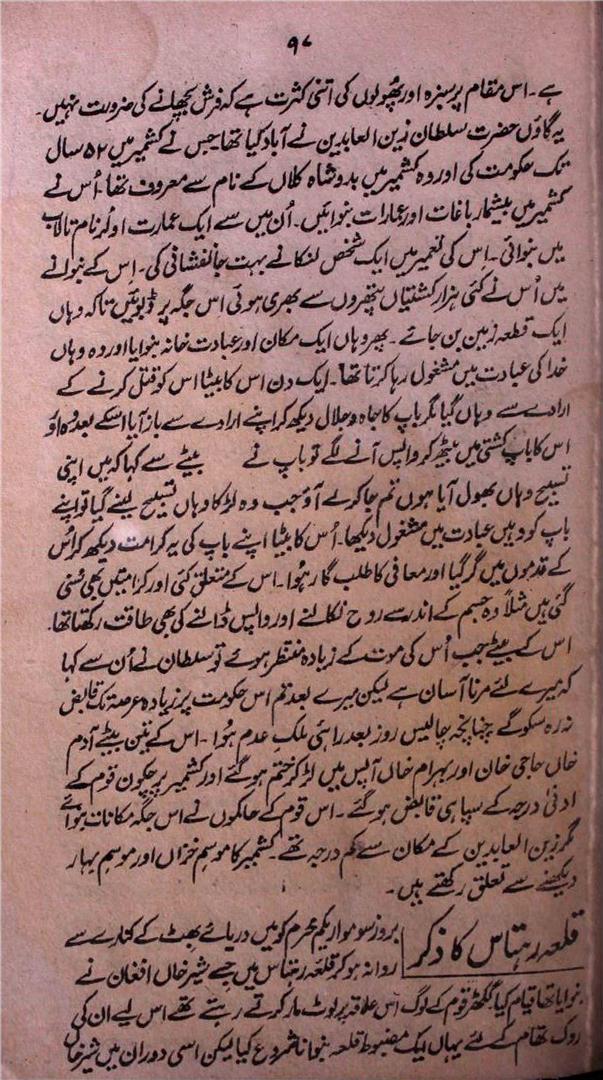 ۹۷
ہے۔ اس مقام پر سبزہ اور پھولوں کی اتنی کثرت ہے کہ فرش بچھانے کی ضرورت نہیں۔
یہ گاؤں حضرت سلطان زین العابدین نے آباد کیا تھا جس نے کشمیر میں ۵۲ سال
تک حکومت کی اور وہ کشمیر میں بدو شاہ کلاں کے نام سے معروف تھا۔ اُس نے
کشمیر میں بیشمار باغات اور عمارات بنوائیں۔ اُن میں سے ایک عمارت اولر نام تالاب
میں بنوائی۔ اِس کی تعمیر میں ایک شخص لنکا نے بہت جانفشانی کی۔ اس کے بنوانے
میں اُس نے کئی ہزار کشتیاں پتھروں سے بھری ہوئی اس جگہ پر ڈبوئیں تاکہ وہاں
ایک قطعہ زمین بن جائے۔ پھر وہاں ایک مکان اور عبادت خانہ بنوایا اور وہ وہاں
خدا کی عبادت میں مشغول رہا کرتا تھا۔ ایک دن اس کا بیٹا اس کو قتل کرنے کے
ارادے سے وہاں گیا مگر باپ کا جاہ و جلال دیکھ کر اپنے ارادے سے باز آیا اسکے بعد وہ اور
اس کا باپ کشتی میں بیٹھ کر واپس آنے لگے تو باپ نے بیٹے سے کہا کہ میں اپنی
تسبیح وہاں بھول آیا ہوں تم جا کر لے آؤ جب وہ لڑکا وہاں تسبیح لینے گیا تو اپنے
باپ کو وہیں عبادت میں مشغول دیکھا۔ اُس کا بیٹا اپنے باپ کی یہ کرامت دیکھ کر اُس
کے قدموں میں گر گیا اور معافی کا طلب گار ہُوا۔ اس کے متعلق کئی اور کرامتیں بھی سُنی
گئی ہیں مثلاً وہ جسم کے اندر سے روح نکالنے اور واپس ڈالنے کی بھی طاقت رکھتا تھا۔
اس کے بیٹے جب اُس کی موت کے زیادہ منتظر ہوئے تو سلطان نے اُن سے کہا
کہ میرے لئے مرنا آسان ہے لیکن میرے بعد تم اس حکومت پر زیادہ عرصہ تک قابض
نہ رہ سکو گے چنانچہ چالیس روز بعد راہئی ملک عدم ہُوا۔ اس کے تین بیٹے آدم
خاں حاجی خان اور بہرام خاں آپس میں لڑ کر ختم ہو گئے اور کشمیر پر چکون قوم کے
ادنیٰ درجہ کے سپاہی قابض ہو گئے۔ اس قوم کے حاکموں نے اس جگہ مکانات بنوائے
مگر زین العابدین کے مکان سے کم درجہ تھے۔ کشمیر کا موسم خزاں اور موسم بہار
دیکھنے سے تعلق رکھتے ہیں۔
قلعہ رہتاس کا ذکر
بروز سوموار یکم محرم کو میں دریائے بھٹ کے کنارے سے
روانہ ہو کر قلعہ رہتاس میں جسے شیر خاں افغان نے
بنوایا تھا قیام کیا گکھڑ قوم کے لوگ اس علاقہ پر لوٹ مار کرتے رہتے تھے اس لیے ان کی
روک تھام کے لئے یہاں ایک مضبوط قلعہ بنوانا شروع کیا لیکن اسی دوران میں شیر خاں